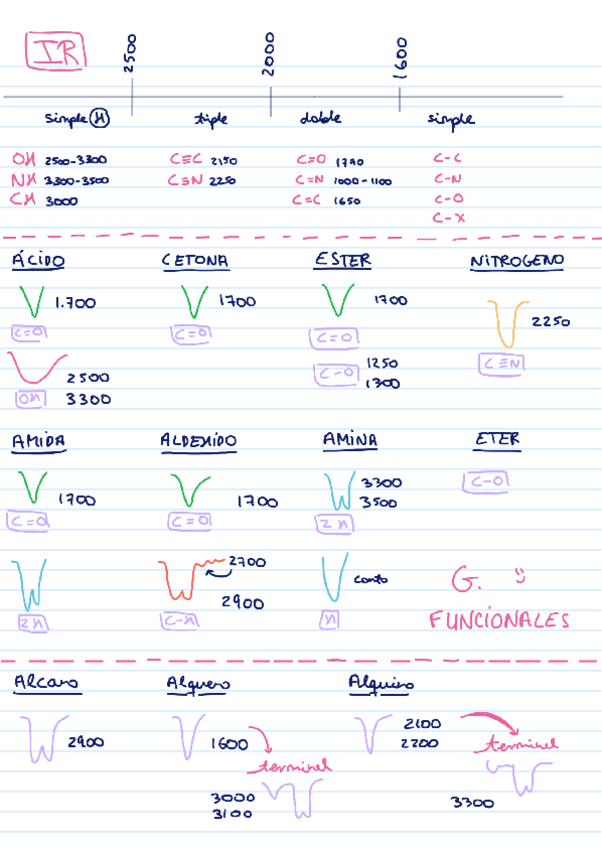 IR
2500
2000
1600
simple (H)
triple
doble
simple
OH 2500-3300
C≡C 2150
C=O 1740
C-C
NH 3300-3500
C≡N 2250
C=N 1000-1100
C-N
CH 3000
C=C 1650
C-O
C-X
ÁCIDO
CETONA
ESTER
NITROGENO
1.700
C=O
1700
C=O
1700
C=O
2250
C≡N
2500
3300
OH
C-O
1250
1300
AMIDA
ALDEHIDO
AMINA
ETER
1700
C=O
1700
C=O
3300
3500
2H
C-O
2H
2700
2900
C-H
H
G.
FUNCIONALES
Alcano
Alqueno
Alquino
2900
1600
terminel
3000
3100
2100
2200
terminel
3300